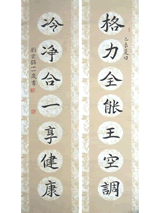 格力全能王空調
冷净合一享健康